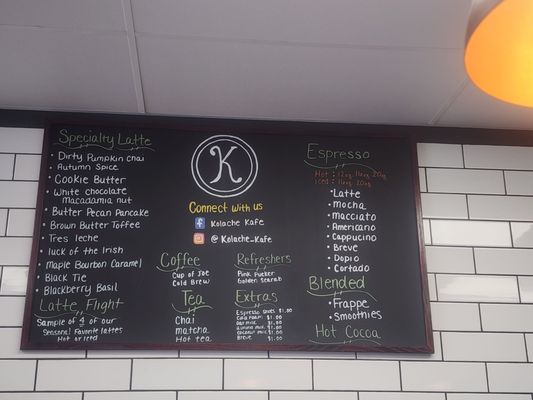 Specialty Latte
Dirty Pumpkin chai
Autumn Spice
Cookie Butter
White chocolate
Macadamia nut
Butter Pecan Pancake
Brown Butter Toffee
Tres leche
luck of the Irish
Maple Bourbon Caramel
Black Tie
Blackberry Basil
Latte Flight
Sample of 4 of our
Seasonal Favorite lattes
Hot or Iced
K
Connect with us
Kolache Kafe
@ Kolache_Kafe
Coffee
Cup of Joe
Cold Brew
Tea
Chai
matcha
Hot tea
Refreshers
Pink Pucker
Golden
Extras
Espresso Shots $1.00
Cold foam $1.00
Oat milk $1.00
almond milk $1.00
coconut milk $1.00
Breve $1.00
Espresso
Hot: 12oz 16oz 20oz
Iced: 16oz 20oz
Latte
Mocha
macciato
Americano
Cappucino
Breve
Dopio
Cortado
Blended
Frappe
Smoothies
Hot Cocoa